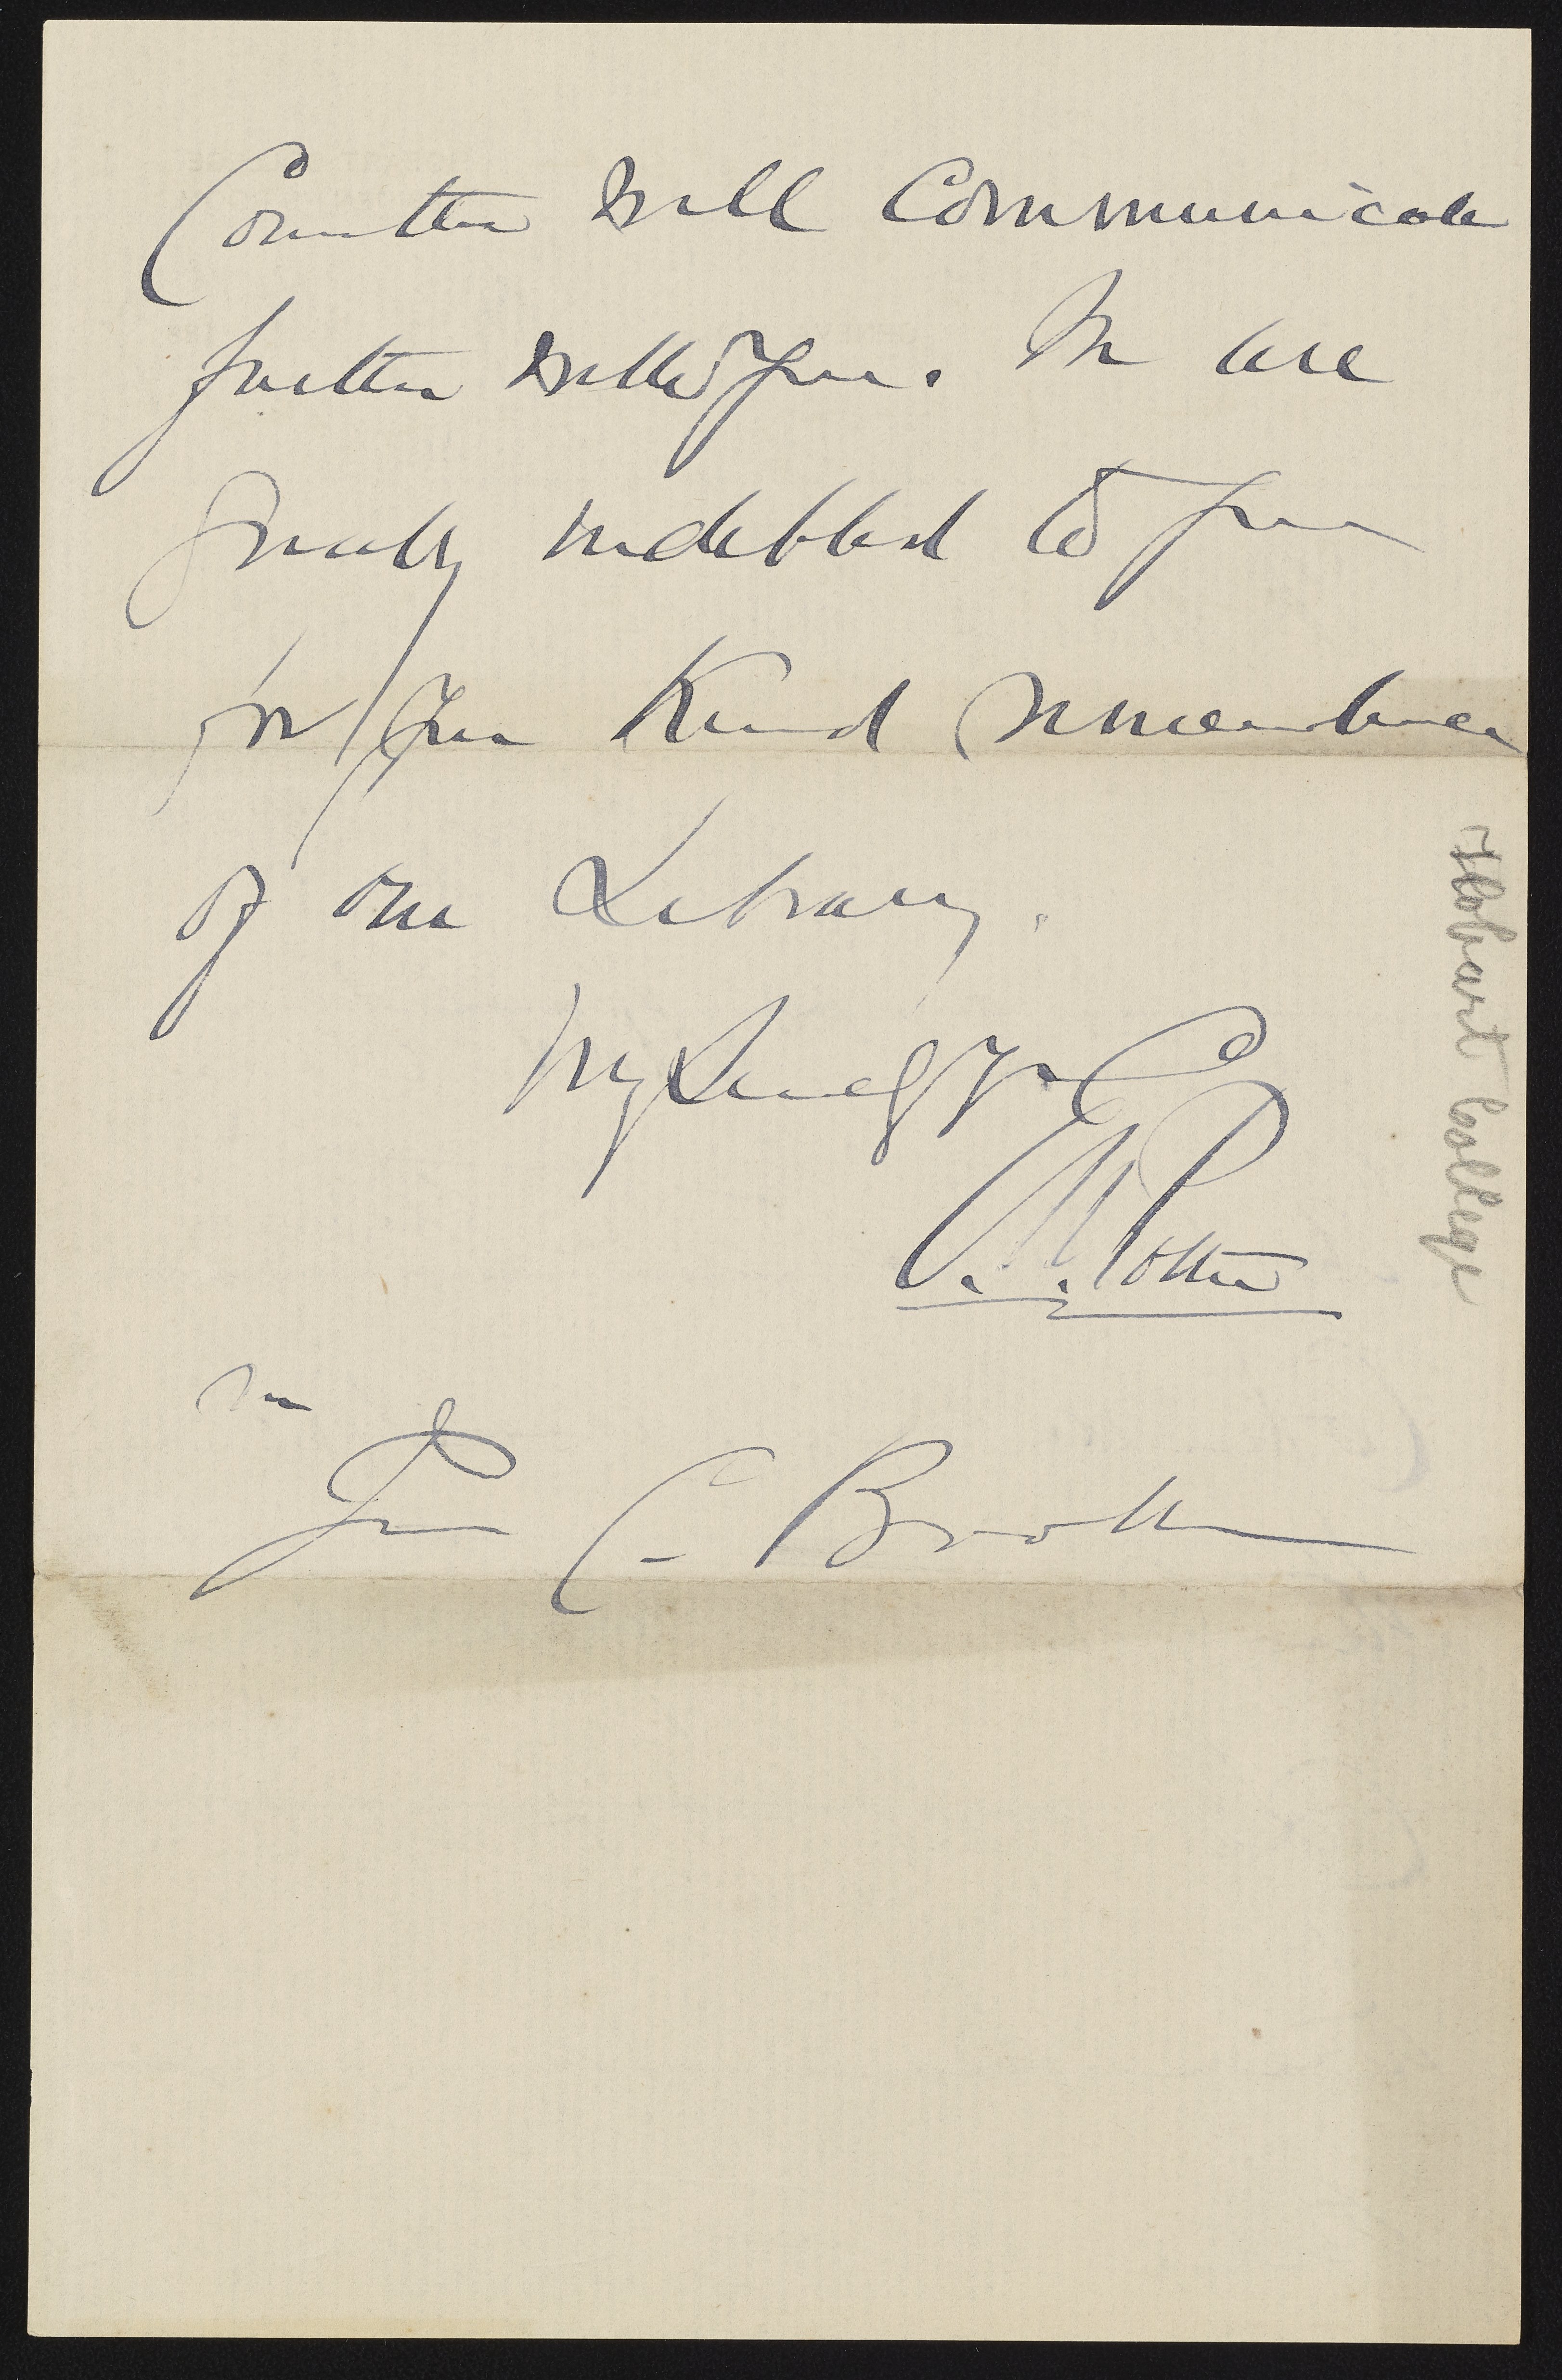 Committee will communicate
further with you. We are
greatly indebted to you
for your kind remembrance
of our Library.
Very Sincerely Yrs
E. N. Potter
Jno C. Brooks
Hobart College